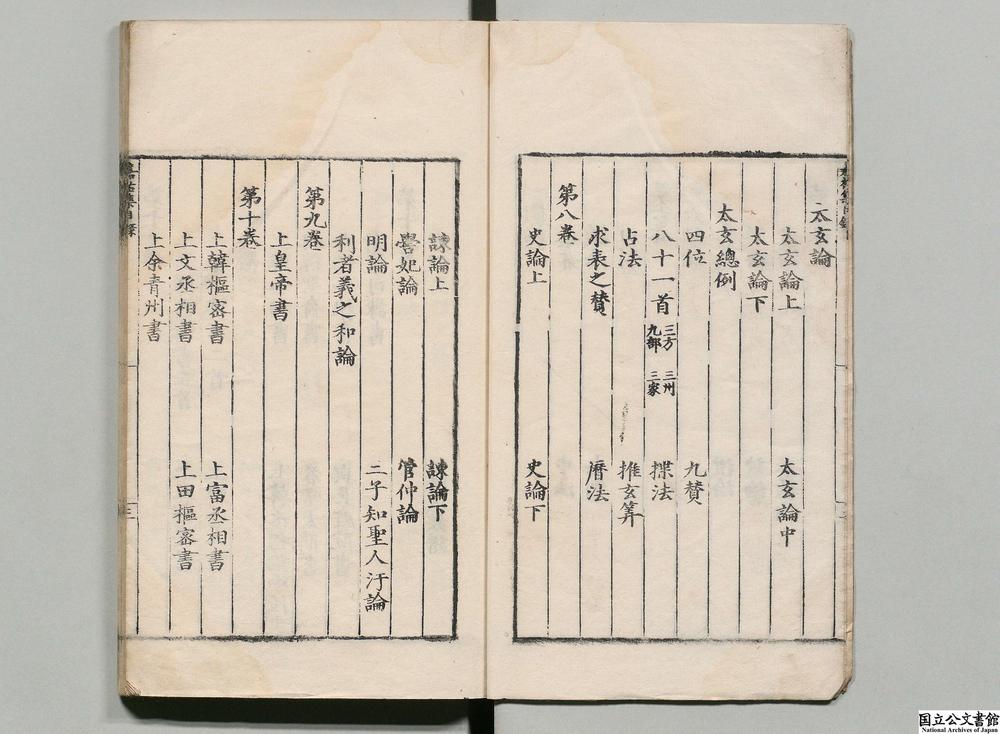 太玄論
太玄論上 太玄論中
太玄論下
太玄總例
四位 九賛
八十一首 三方 三州 九部 三家 揲法
占法 推玄筭
求表之賛 曆法
第八卷
史論上 史論下
諫論上 諫論下
嚳妃論 管仲論
明論 三子知聖人汙論
利者義之和論
第九卷
上皇帝書
第十卷
上韓樞密書 上富丞相書
上文丞相書 上田樞密書
上余青州書
国立公文書館
National Archives of Japan